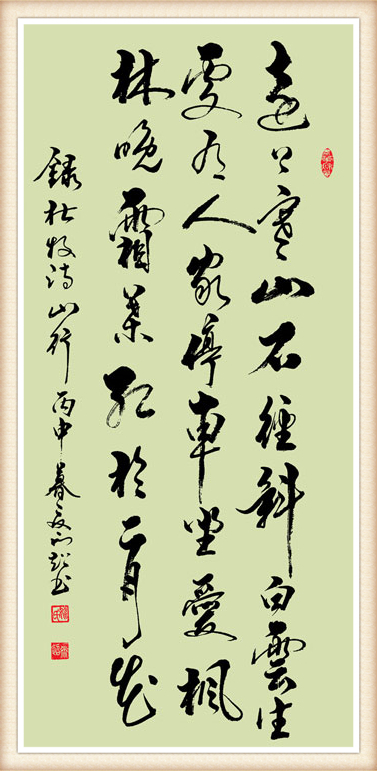 遠上寒山石徑斜白雲生
處有人家停車坐愛楓
林晚霜葉紅於二月花
錄杜牧詩山行丙申暮夏超书